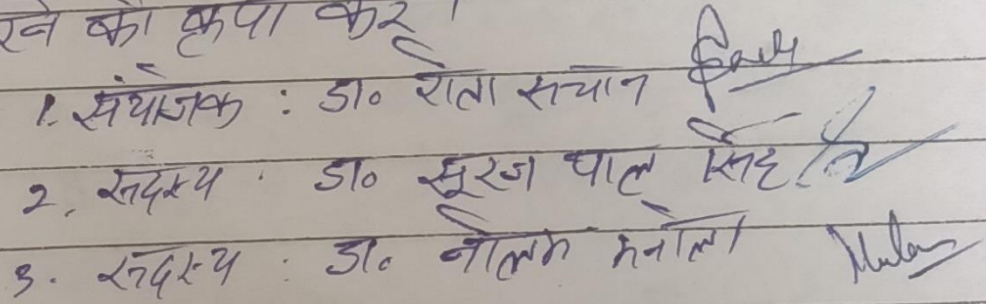 रने की कृपा करें।
1. संयोजक : डा० रीता सचान
2. सदस्य : डा० सूरज पाल सिंह
3. सदस्य : डा. नीलम मनोला